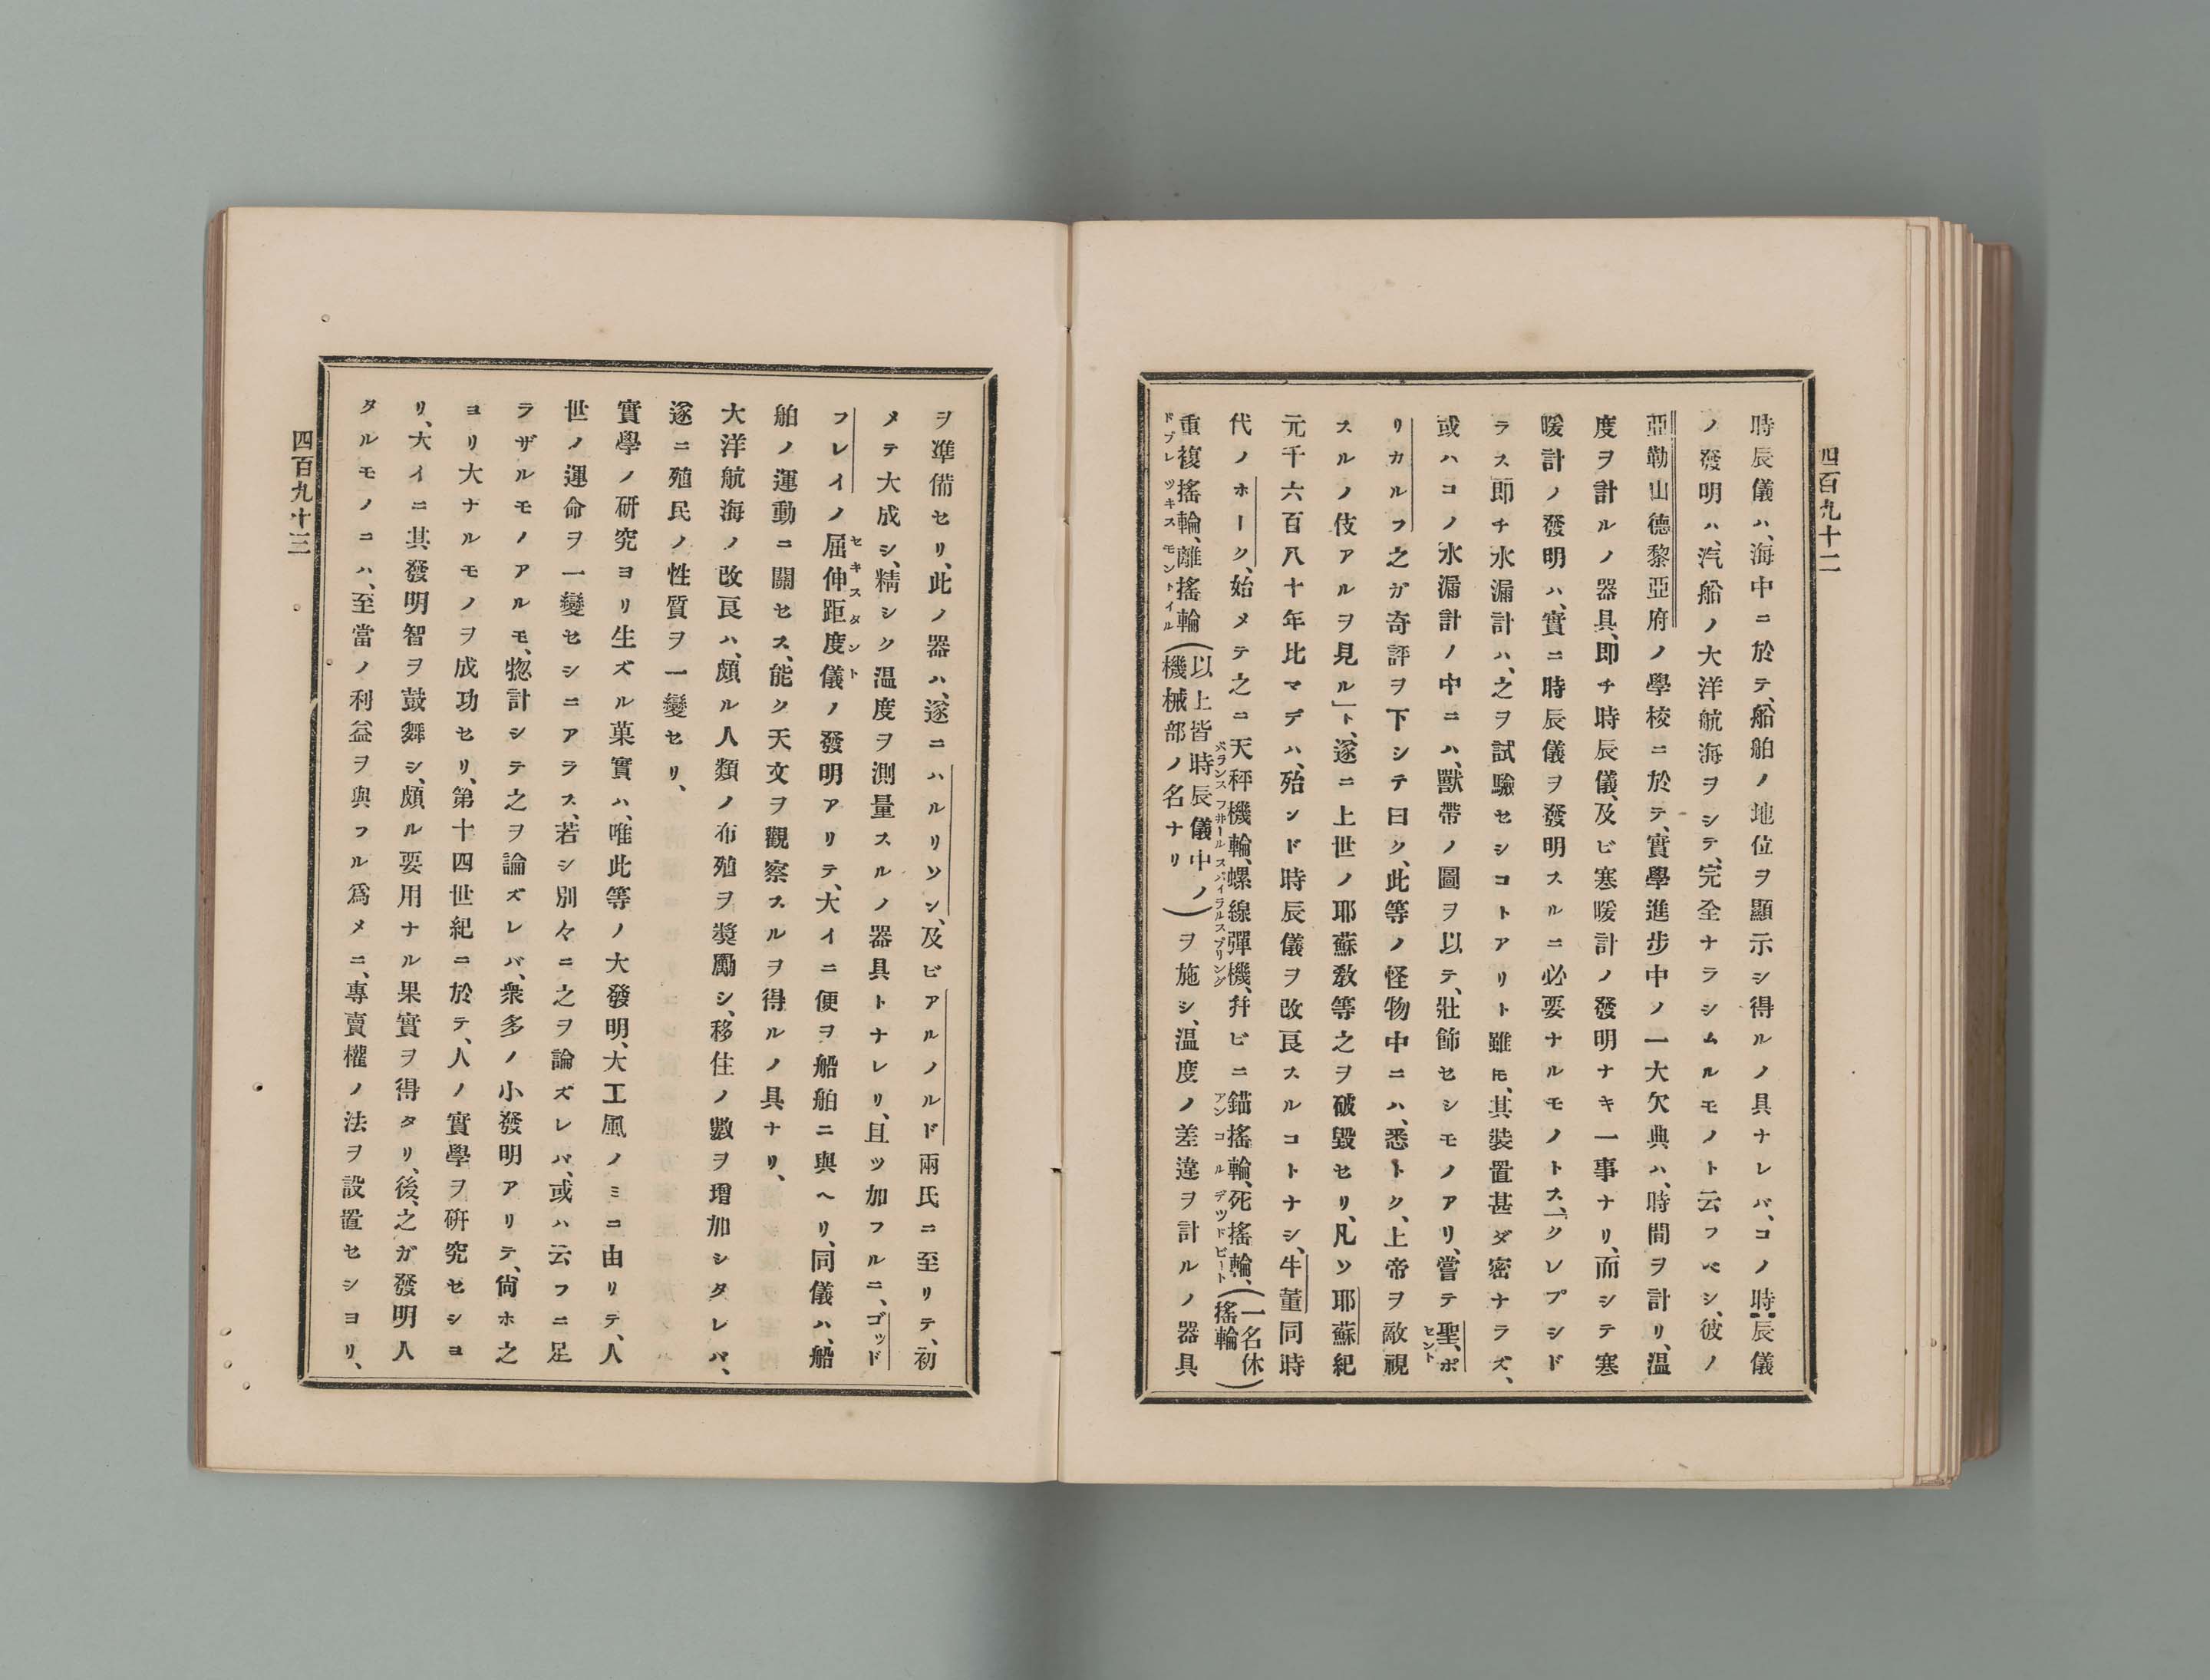 四百九十二
時辰儀ハ、海中ニ於テ、船舶ノ地位ヲ顯示シ得ルノ具ナレバ、コノ時辰儀
ノ發明ハ、汽船ノ大洋航海ヲシテ、完全ナラシムルモノト云フベシ、彼ノ
亞勒山德黎亞府ノ學校ニ於テ、實學進步中ノ一大欠典ハ、時間ヲ計リ、溫
度ヲ計ルノ器具、即チ時辰儀、及ビ寒暖計ノ發明ナキ一事ナリ、而シテ寒
暖計ノ發明ハ、實ニ時辰儀ヲ發明スルニ必要ナルモノトス、「クレプシド
ラス」即チ水漏計ハ、之ヲ試驗セシコトアリト雖𪜈、其裝置甚ダ密ナラズ、
或ハコノ水漏計ノ中ニハ、獸帶ノ圖ヲ以テ、壯飾セシモノアリ、嘗テ聖、ポ
セント
リカルフ之ガ奇評ヲ下シテ曰ク、此等ノ怪物中ニハ、悉トク、上帝ヲ敵視
スルノ伎アルヲ見ル」ト、遂ニ上世ノ耶蘇敎等之ヲ破毀セリ、凡ソ耶蘇紀
元千六百八十年比マデハ、殆ンド時辰儀ヲ改良スルコトナシ、牛董同時
代ノホーク、始メテ之ニ天秤機輪、螺線彈機、幷ビニ錨搖輪、死搖輪、(一名休搖輪)
バランスフ井ール スパイラルスプリング アンコル デツドビート
重複搖輪、離搖輪(以上皆時辰儀中ノ機械部ノ名ナリ)ヲ施シ、溫度ノ差違ヲ計ルノ器具
ドブレツキス モントイル
ヲ準備セリ、此ノ器ハ、遂ニハルリソン、及ビアルノルド兩氏ニ至リテ、初
メテ大成シ、精シク溫度ヲ測量スルノ器具トナレリ、且ツ加フルニ、ゴッド
フレイノ屈伸距度儀ノ發明アリテ、大イニ便ヲ船舶ニ與ヘリ、同儀ハ、船
セキスタント
舶ノ運動ニ關セス、能ク天文ヲ觀察スルヲ得ルノ具ナリ、
大洋航海ノ改良ハ、頗ル人類ノ布殖ヲ奬勵シ、移住ノ數ヲ增加シタレバ、
遂ニ殖民ノ性質ヲ一變セリ、
實學ノ硏究ヨリ生ズル菓實ハ、唯此等ノ大發明、大工風ノミニ由リテ、人
世ノ運命ヲ一變セシニアラス、若シ別々ニ之ヲ論ズレバ、或ハ云フニ足
ラザルモノアルモ、惣計シテ之ヲ論ズレバ、衆多ノ小發明アリテ、尙ホ之
ヨリ大ナルモノヲ成功セリ、第十四世紀ニ於テ、人ノ實學ヲ硏究セシヨ
リ、大イニ其發明智ヲ鼓舞シ、頗ル要用ナル果實ヲ得タリ、後、之ガ發明人
タルモノニハ、至當ノ利益ヲ與フル爲メニ、專賣權ノ法ヲ設置セシヨリ、
四百九十三